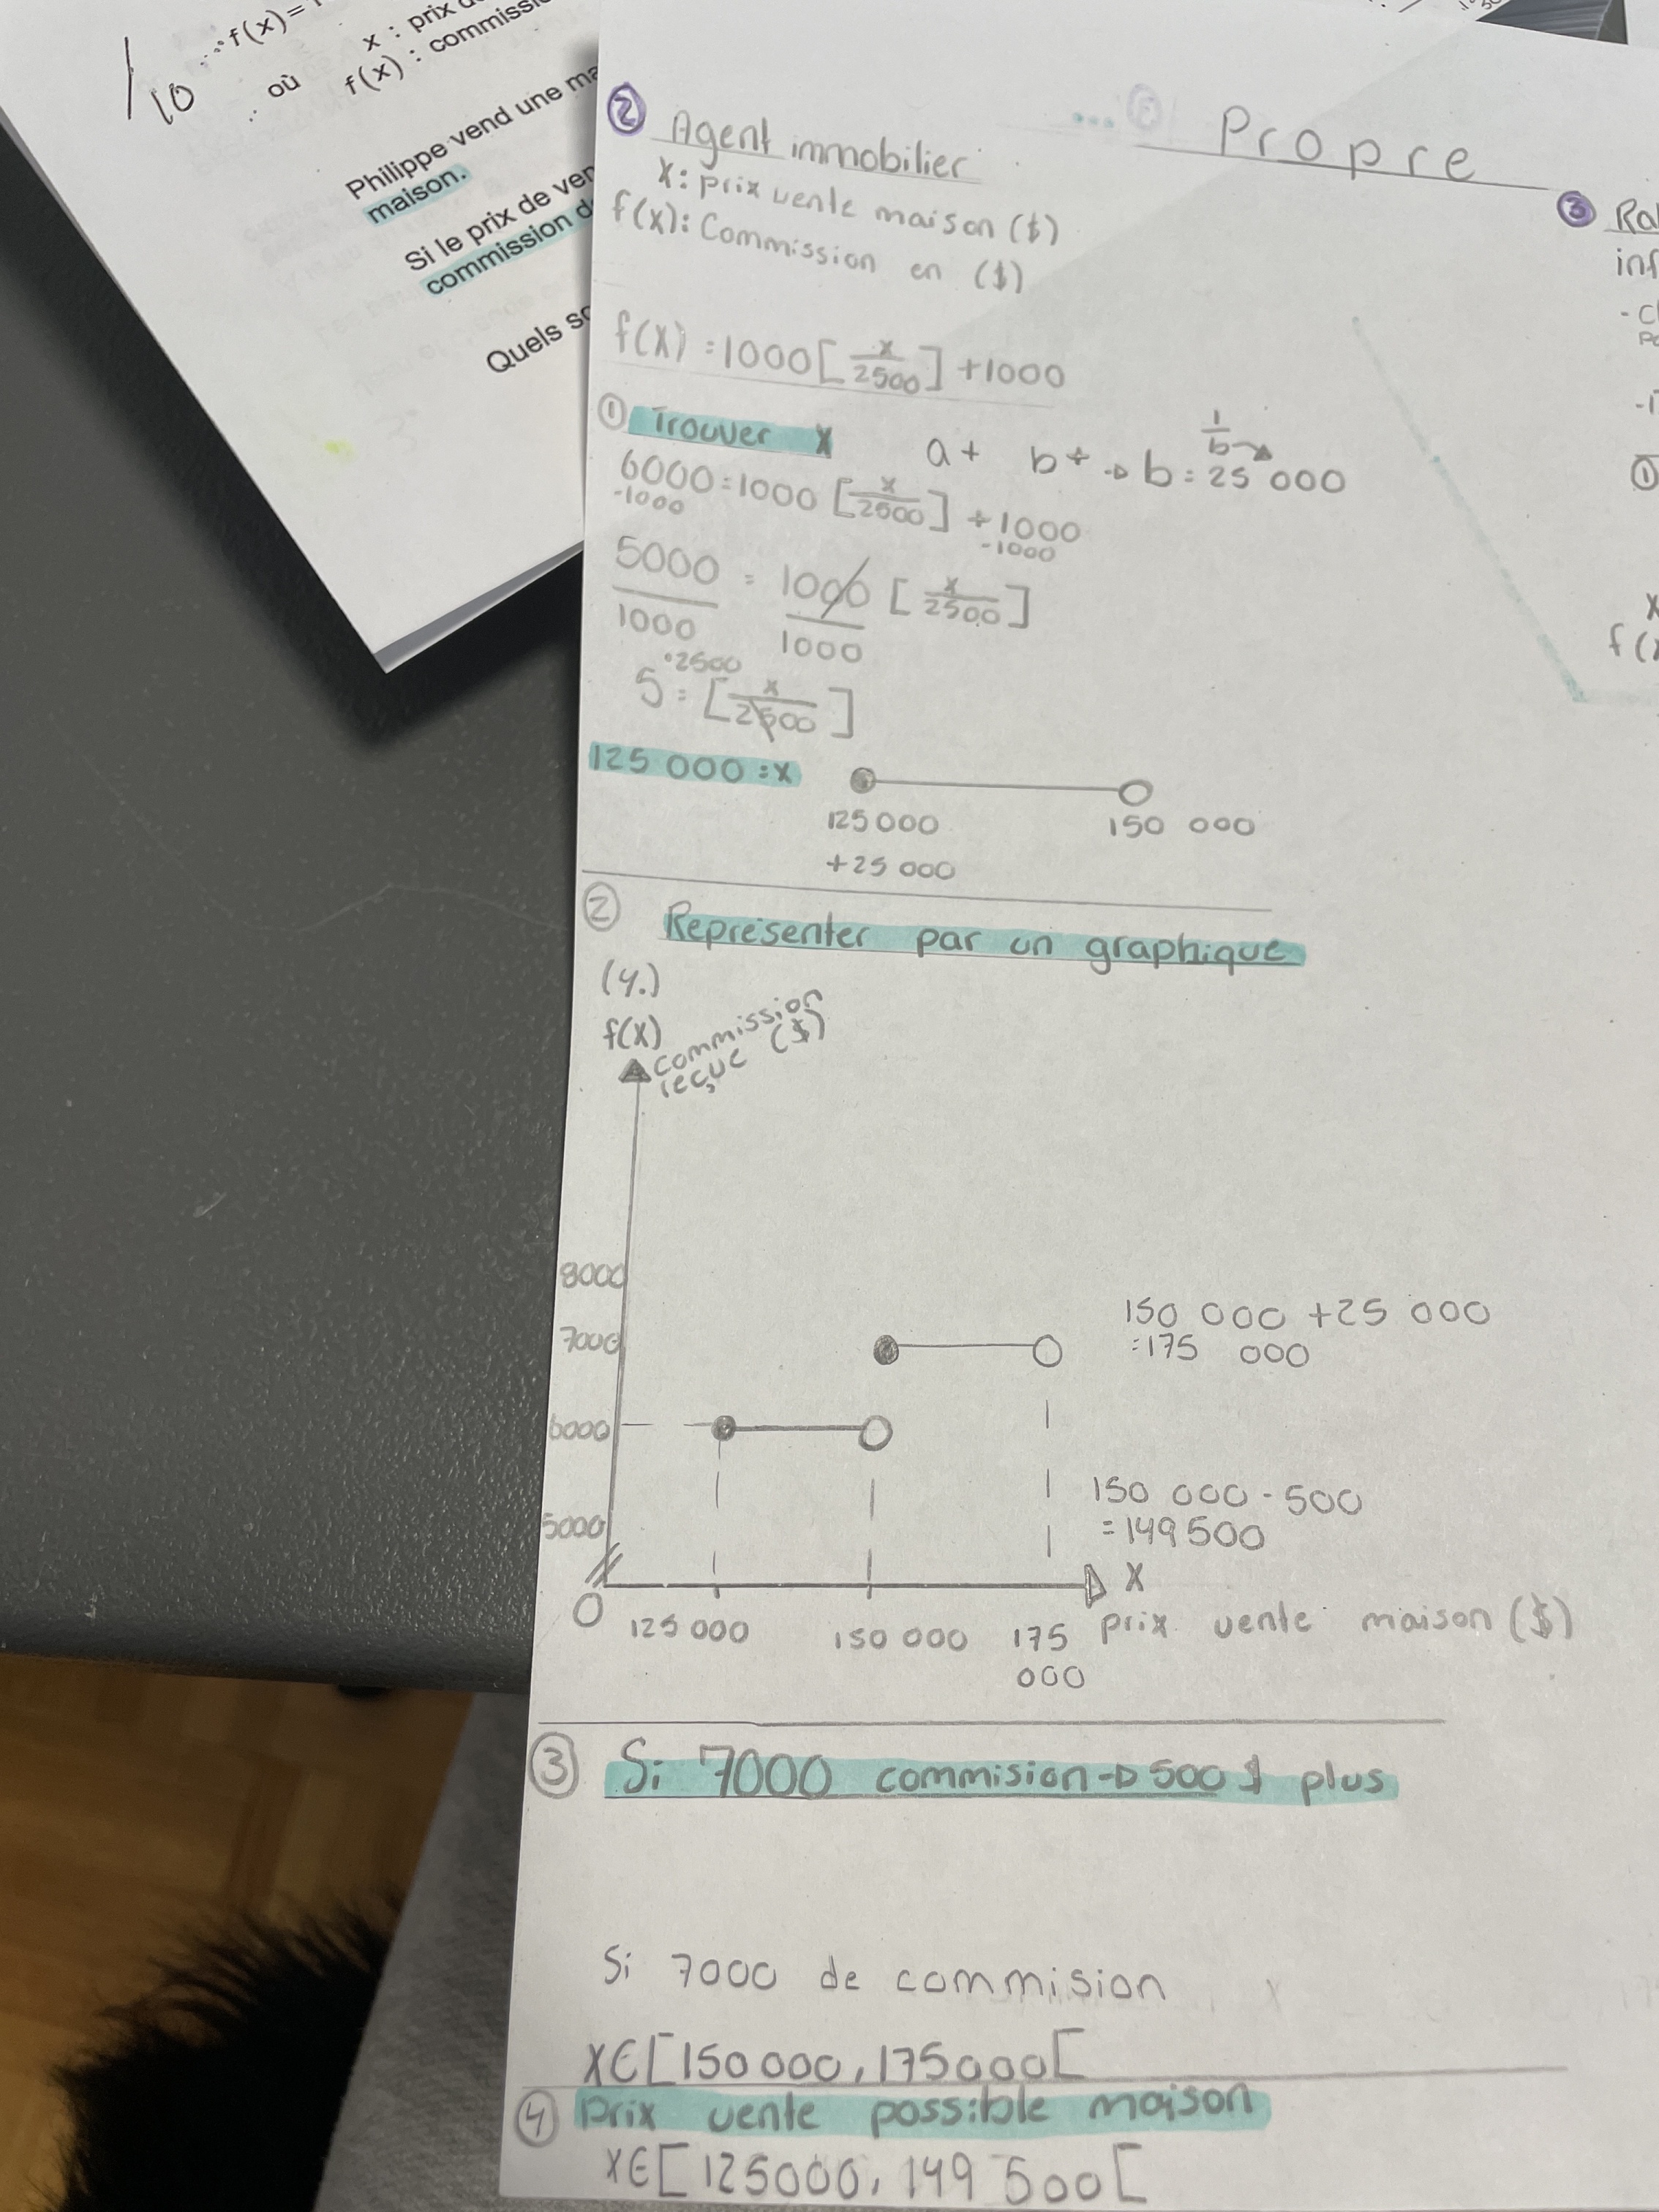 /10
f(x)=
où
x : prix
f(x) : commissi
Philippe vend une
maison.
Si le prix de
commission
Quels
② Agent immobilier
x: prix vente maison ($)
f(x): Commission en ($)
f(x) = 1000[x/2500] +1000
① Trouver x
a+ b+ → b = 25 000
1/b
6000 = 1000 [x/2500] + 1000
-1000 -1000
5000/1000 = 1000/1000 [x/2500]
•2500
5 = [x/2500]
125 000 = x
125 000 150 000
+25 000
② Représenter par un graphique
(y.)
f(x)
commission
reçue ($)
8000
7000
6000
5000
150 000 +25 000
=175 000
150 000 - 500
= 149 500
x
0 125 000 150 000 175 000
prix vente maison ($)
③ Si 7000 commision → 500 $ plus
Si 7000 de commision
x∈[150 000, 175 000[
④ Prix vente possible maison
x∈[125000, 149 500[
Propre
③
①
x